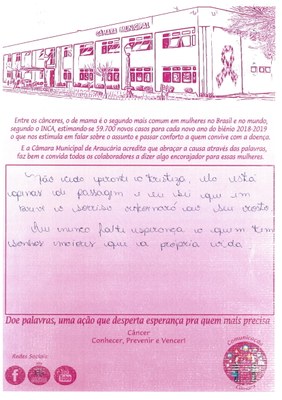 CÂMARA MUNICIPAL
Entre os cânceres, o de mama é o segundo mais comum em mulheres no Brasil e no mundo,
segundo o INCA, estimando-se 59.700 novos casos para cada novo ano do biênio 2018-2019
o que nos estimula em falar sobre o assunto e passar conforto a quem convive com a doença.
E a Câmara Municipal de Araucária acredita que abraçar a causa através das palavras,
faz bem e convida todos os colaboradores a dizer algo encorajador para essas mulheres.
Não tema quanto a tristeza, ela está
apenas de passagem e eu sei que em
breve o sorriso retornará ao seu rosto.
Que nunca falte esperança a quem tem
sonhos maiores que a própria vida
Doe palavras, uma ação que desperta esperança pra quem mais precisa
Câncer
Conhecer, Prevenir e Vencer!
Redes Sociais: